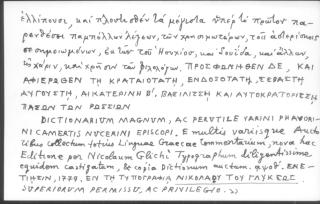 ἐλλίποιος, καὶ πλουτισθὲν τὰ μέγιστα ὑπὲρ τὸ πρῶτον πα-
ραθέσει παμπόλλων λέξεων, τῶν χρησιμωτέρων, τοῦ ἀστερίσκοις
σεσημειωμένων, ἐκ τῶν τοῦ Ἡσυχίου, καὶ Σουίδα, καὶ ἄλλων,
εἰς χάριν, καὶ χρῆσιν τῶν φιλολόγων. ΠΡΟΣΦΩΝΗΘΕΝ ΔΕ, ΚΑΙ
ΑΦΙΕΡΩΘΕΝ ΤΗ ΚΡΑΤΑΙΟΤΑΤΗ, ΕΝΔΟΞΟΤΑΤΗ, ΣΕΒΑΣΤΗ
ΑΥΓΟΥΣΤΗ, ΑΙΚΑΤΕΡΙΝΗ Β', ΒΑΣΙΛΙΣΣΗ ΚΑΙ ΑΥΤΟΚΡΑΤΟΡΙΣΣΗ
ΠΑΣΩΝ ΤΩΝ ΡΩΣΣΙΩΝ
DICTIONARIUM MAGNUM, AC PERUTILE VARINI PHAVORI-
NI CAMERTIS NUCERINI EPISCOPI. E multis variisque Aucto-
ribus collectum totius Linguae Graecae Commentarium, nova hac
Editione per Nicolaum Glichi Typographum diligentissime
equidem castigatum, & copia Dictionum auctum. αψοθ'. ΕΝΕ-
ΤΙΗΣΙΝ, 1779. ΕΝ ΤΗ ΤΥΠΟΓΡΑΦΙΑ ΝΙΚΟΛΑΟΥ ΤΟΥ ΓΛΥΚΕΩΣ.
SUPERIORUM PERMISSU, AC PRIVILEGIO.